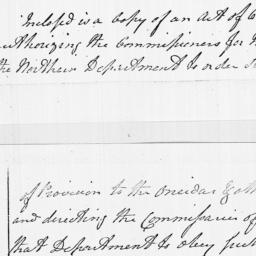 Inclosed is a Copy of an Act of
authorizing the Commissioners for
the Northern Department to order
of Provision to the Oneidas &
and directing the Commissaries of
that Department to obey such